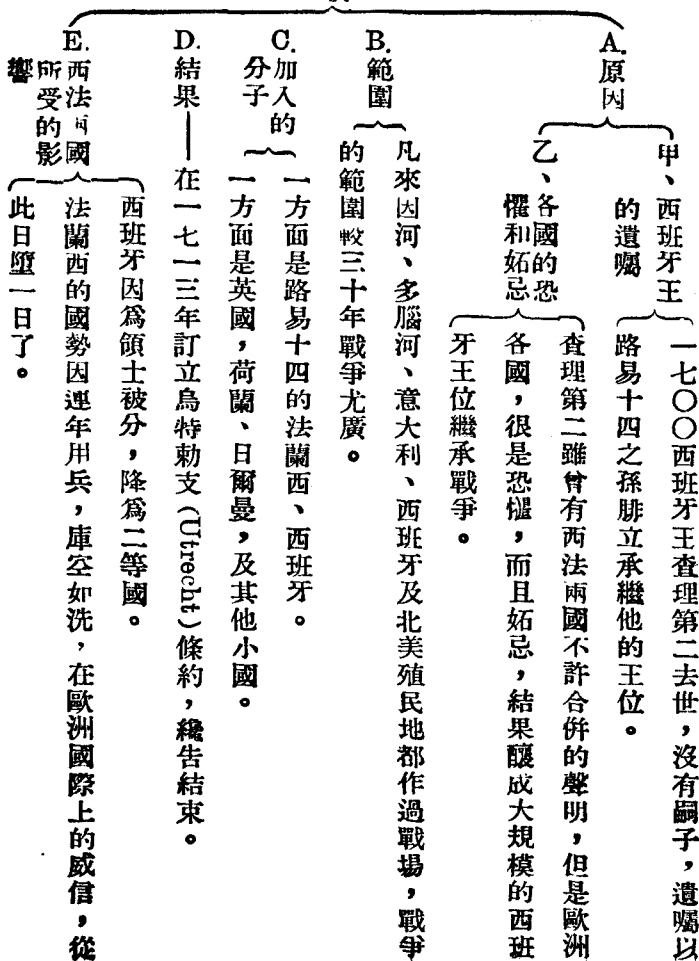 A.原因
甲、西班牙王
的遺囑
一七〇〇西班牙王查理第二去世，沒有嗣子，遺囑以
路易十四之孫腓立承繼他的王位。
乙、各國的恐
懼和妬忌
查理第二雖曾有西法兩國不許合併的聲明，但是歐洲
各國，很是恐慌，而且妬忌，結果釀成大規模的西班
牙王位繼承戰爭。
B.範圍
凡來因河、多腦河、意大利、西班牙及北美殖民地都作過戰場，戰爭
的範圍較三十年戰爭尤廣。
C.加入的
分子
一方面是路易十四的法蘭西、西班牙。
一方面是英國，荷蘭、日爾曼，及其他小國。
D.結果——在一七一三年訂立烏特勒支（Utrecht）條約，纔告結束。
E.西法兩國
所受的影
響
西班牙因爲領土被分，降爲二等國。
法蘭西的國勢因連年用兵，庫空如洗，在歐洲國際上的威信，從
此日墮一日了。